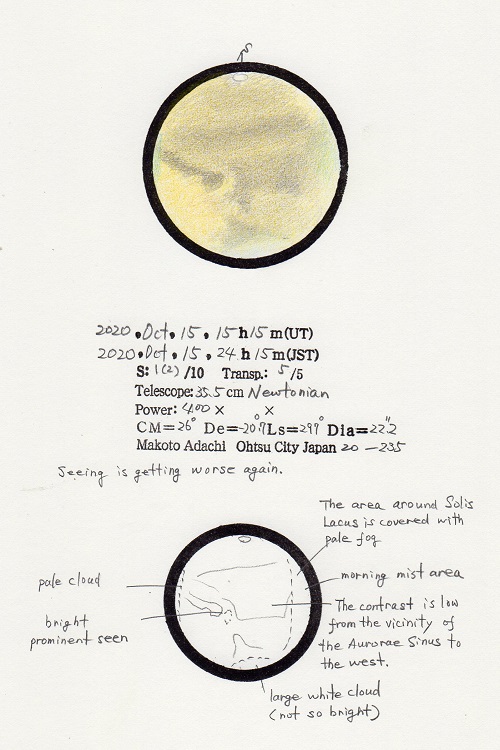 S
2020, Oct, 15, 15 h 15 m (UT)
2020, Oct, 15, 24 h 15 m (JST)
S: 1(2) /10 Transp.: 5/5
Telescope: 35.5 cm Newtonian
Power: 400 × ×
CM=26° De=-20.°7 Ls=297° Dia=22."2
Makoto Adachi Ohtsu City Japan 20-235
Seeing is getting worse again.
The area around Solis
Lacus is covered with
pale fog
pale cloud
morning mist area
The contrast is low
from the vicinity of
the Aurorae Sinus to
the west.
bright
prominent seen
large white cloud
(not so bright)